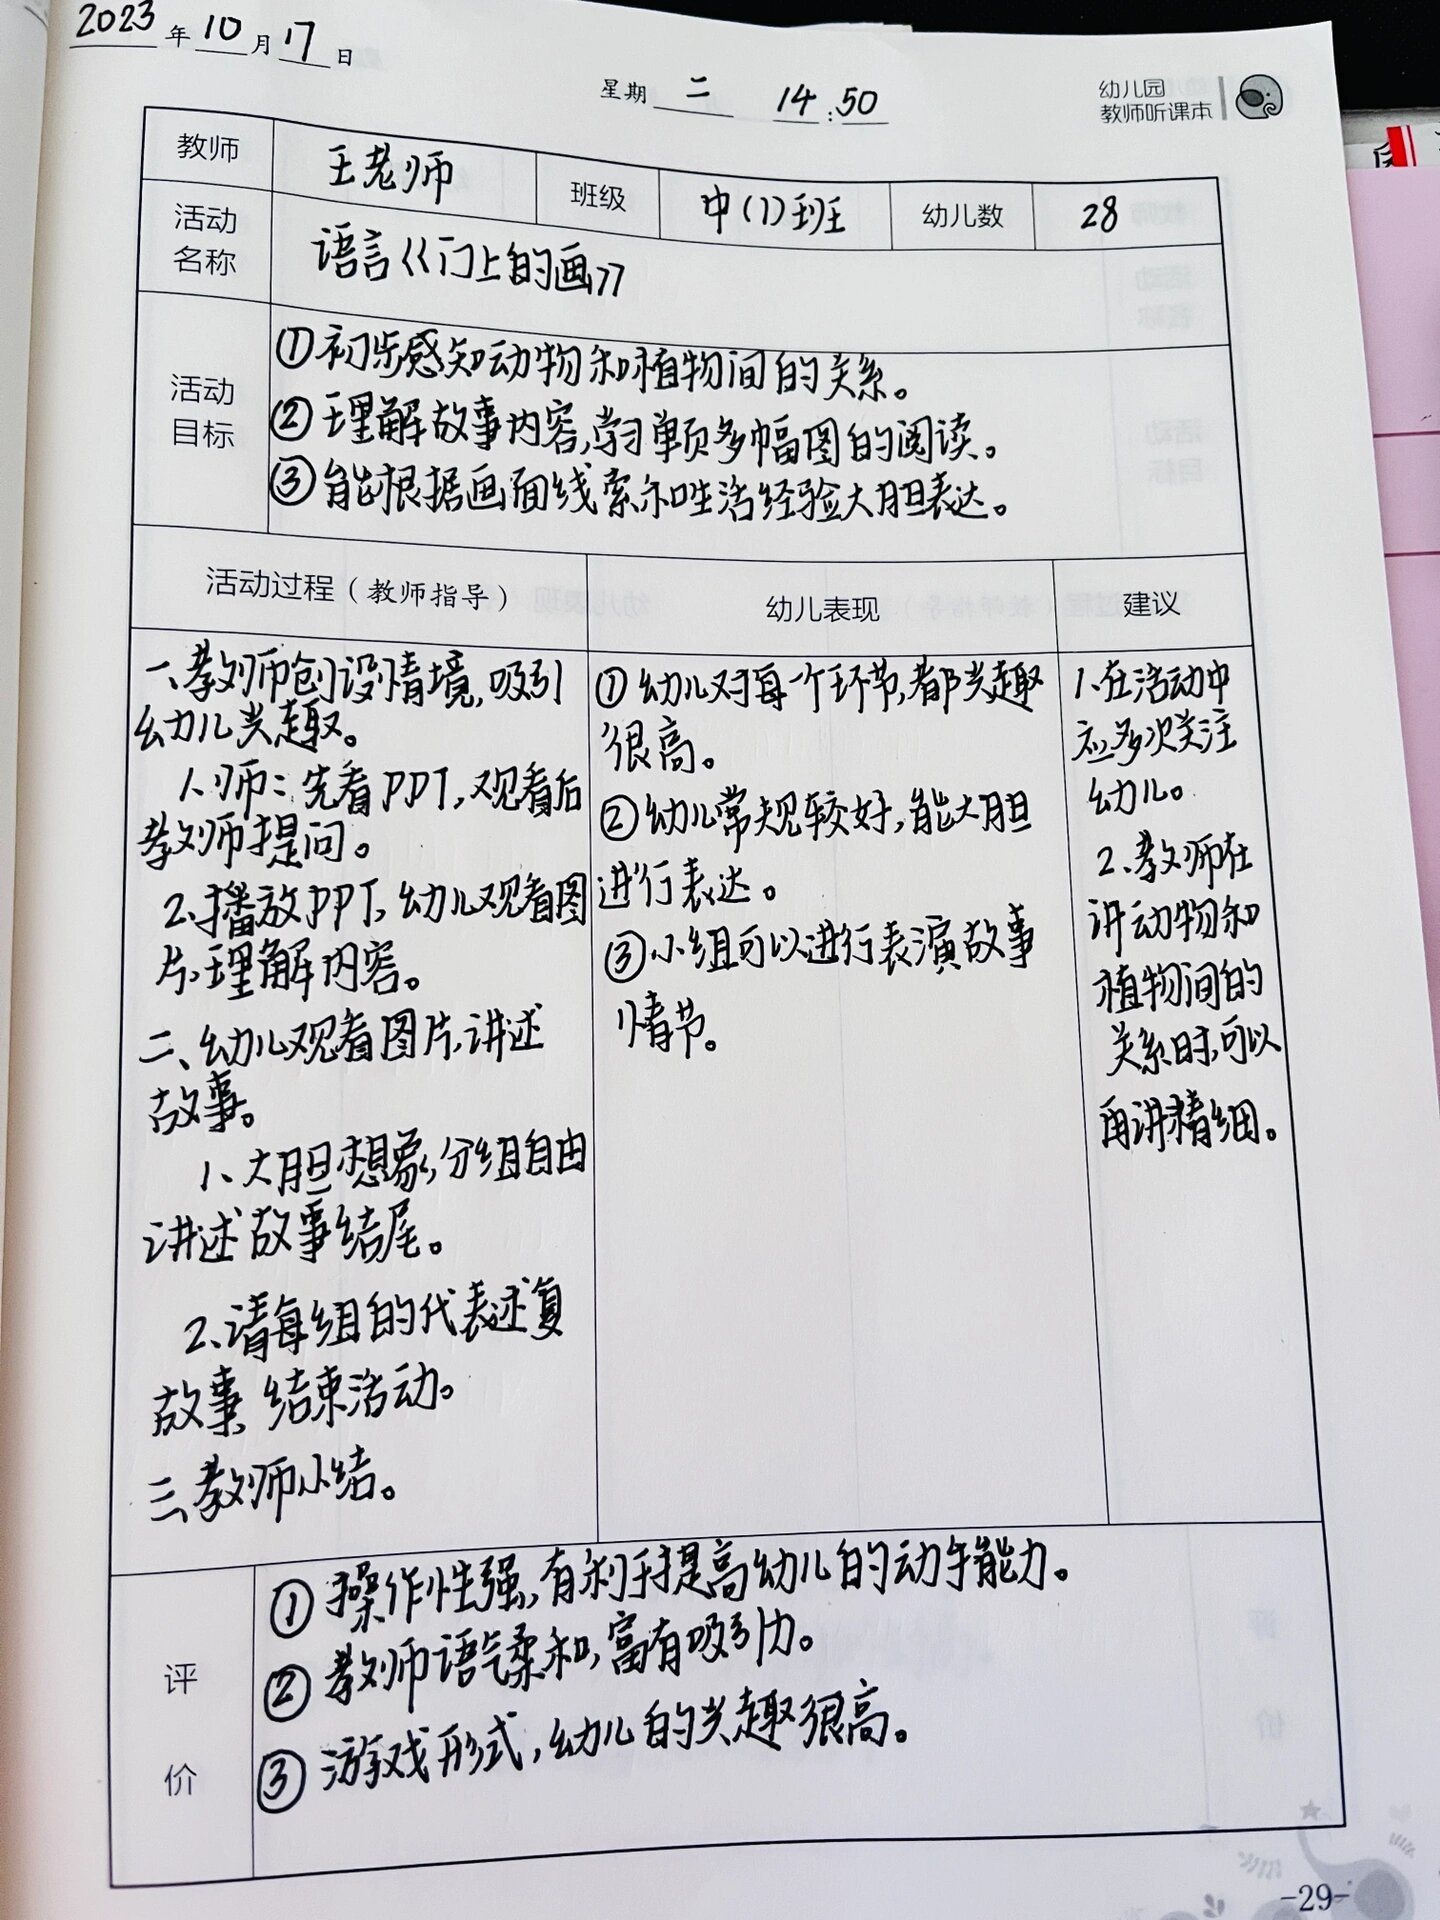 2023年10月17日
星期 二 14:50
幼儿园
教师听课本
教师 王老师 班级 中(1)班 幼儿数 28
活动
名称
语言《门上的画》
活动
目标
①初步感知动物和植物间的关系。
②理解故事内容,学习单页多幅图的阅读。
③能根据画面线索和生活经验大胆表达。
活动过程(教师指导) 幼儿表现 建议
一、教师创设情境,吸引
幼儿兴趣。
1、师:先看PPT,观看后
教师提问。
2、播放PPT,幼儿观看图
片,理解内容。
二、幼儿观看图片,讲述
故事。
1、大胆想象,分组自由
讲述故事结尾。
2、请每组的代表述复
故事,结束活动。
三、教师小结。
①幼儿对每一个环节,都兴趣
很高。
②幼儿常规较好,能大胆
进行表达。
③小组可以进行表演故事
情节。
1、在活动中
应多次关注
幼儿。
2、教师在
讲动物和
植物间的
关系时,可以
再讲精细。
评
价
①操作性强,有利于提高幼儿的动手能力。
②教师语气柔和,富有吸引力。
③游戏形式,幼儿的兴趣很高。
-29-